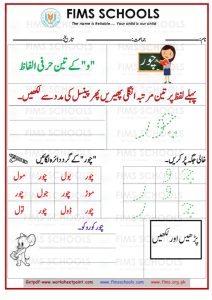 FIMS SCHOOLS
The name is Reliable .... Your child is our child
نام: جماعت: تاریخ:
"و" کے تین حرفی الفاظ
چور
پہلے لفظ پر تین مرتبہ انگلی پھیریں پھر پینسل کی مدد سے لکھیں۔
خالی جگہ پُر کریں۔
"چور" کے گرد دائرہ لگائیں
چور بول چور مول
موڑ چور جول چور
چور ڈول چور تول
چور کو رد کو۔
پڑھیں اور لکھیں
Getpdf-www.worksheetpoint.com www.fimsschools.com www.fims.org.pk